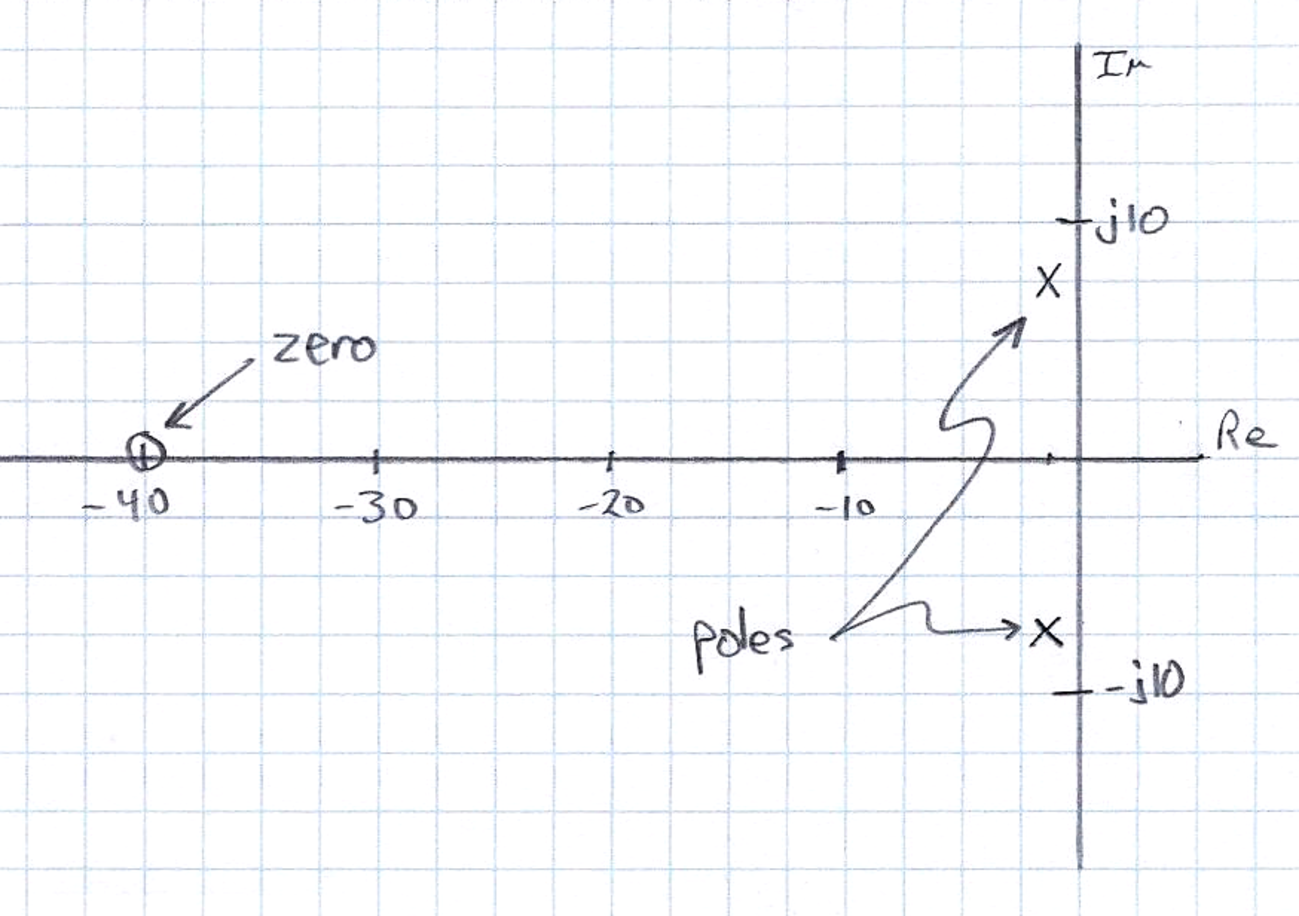 Im
j10
X
zero
Re
-40
-30
-20
-10
poles
X
-j10